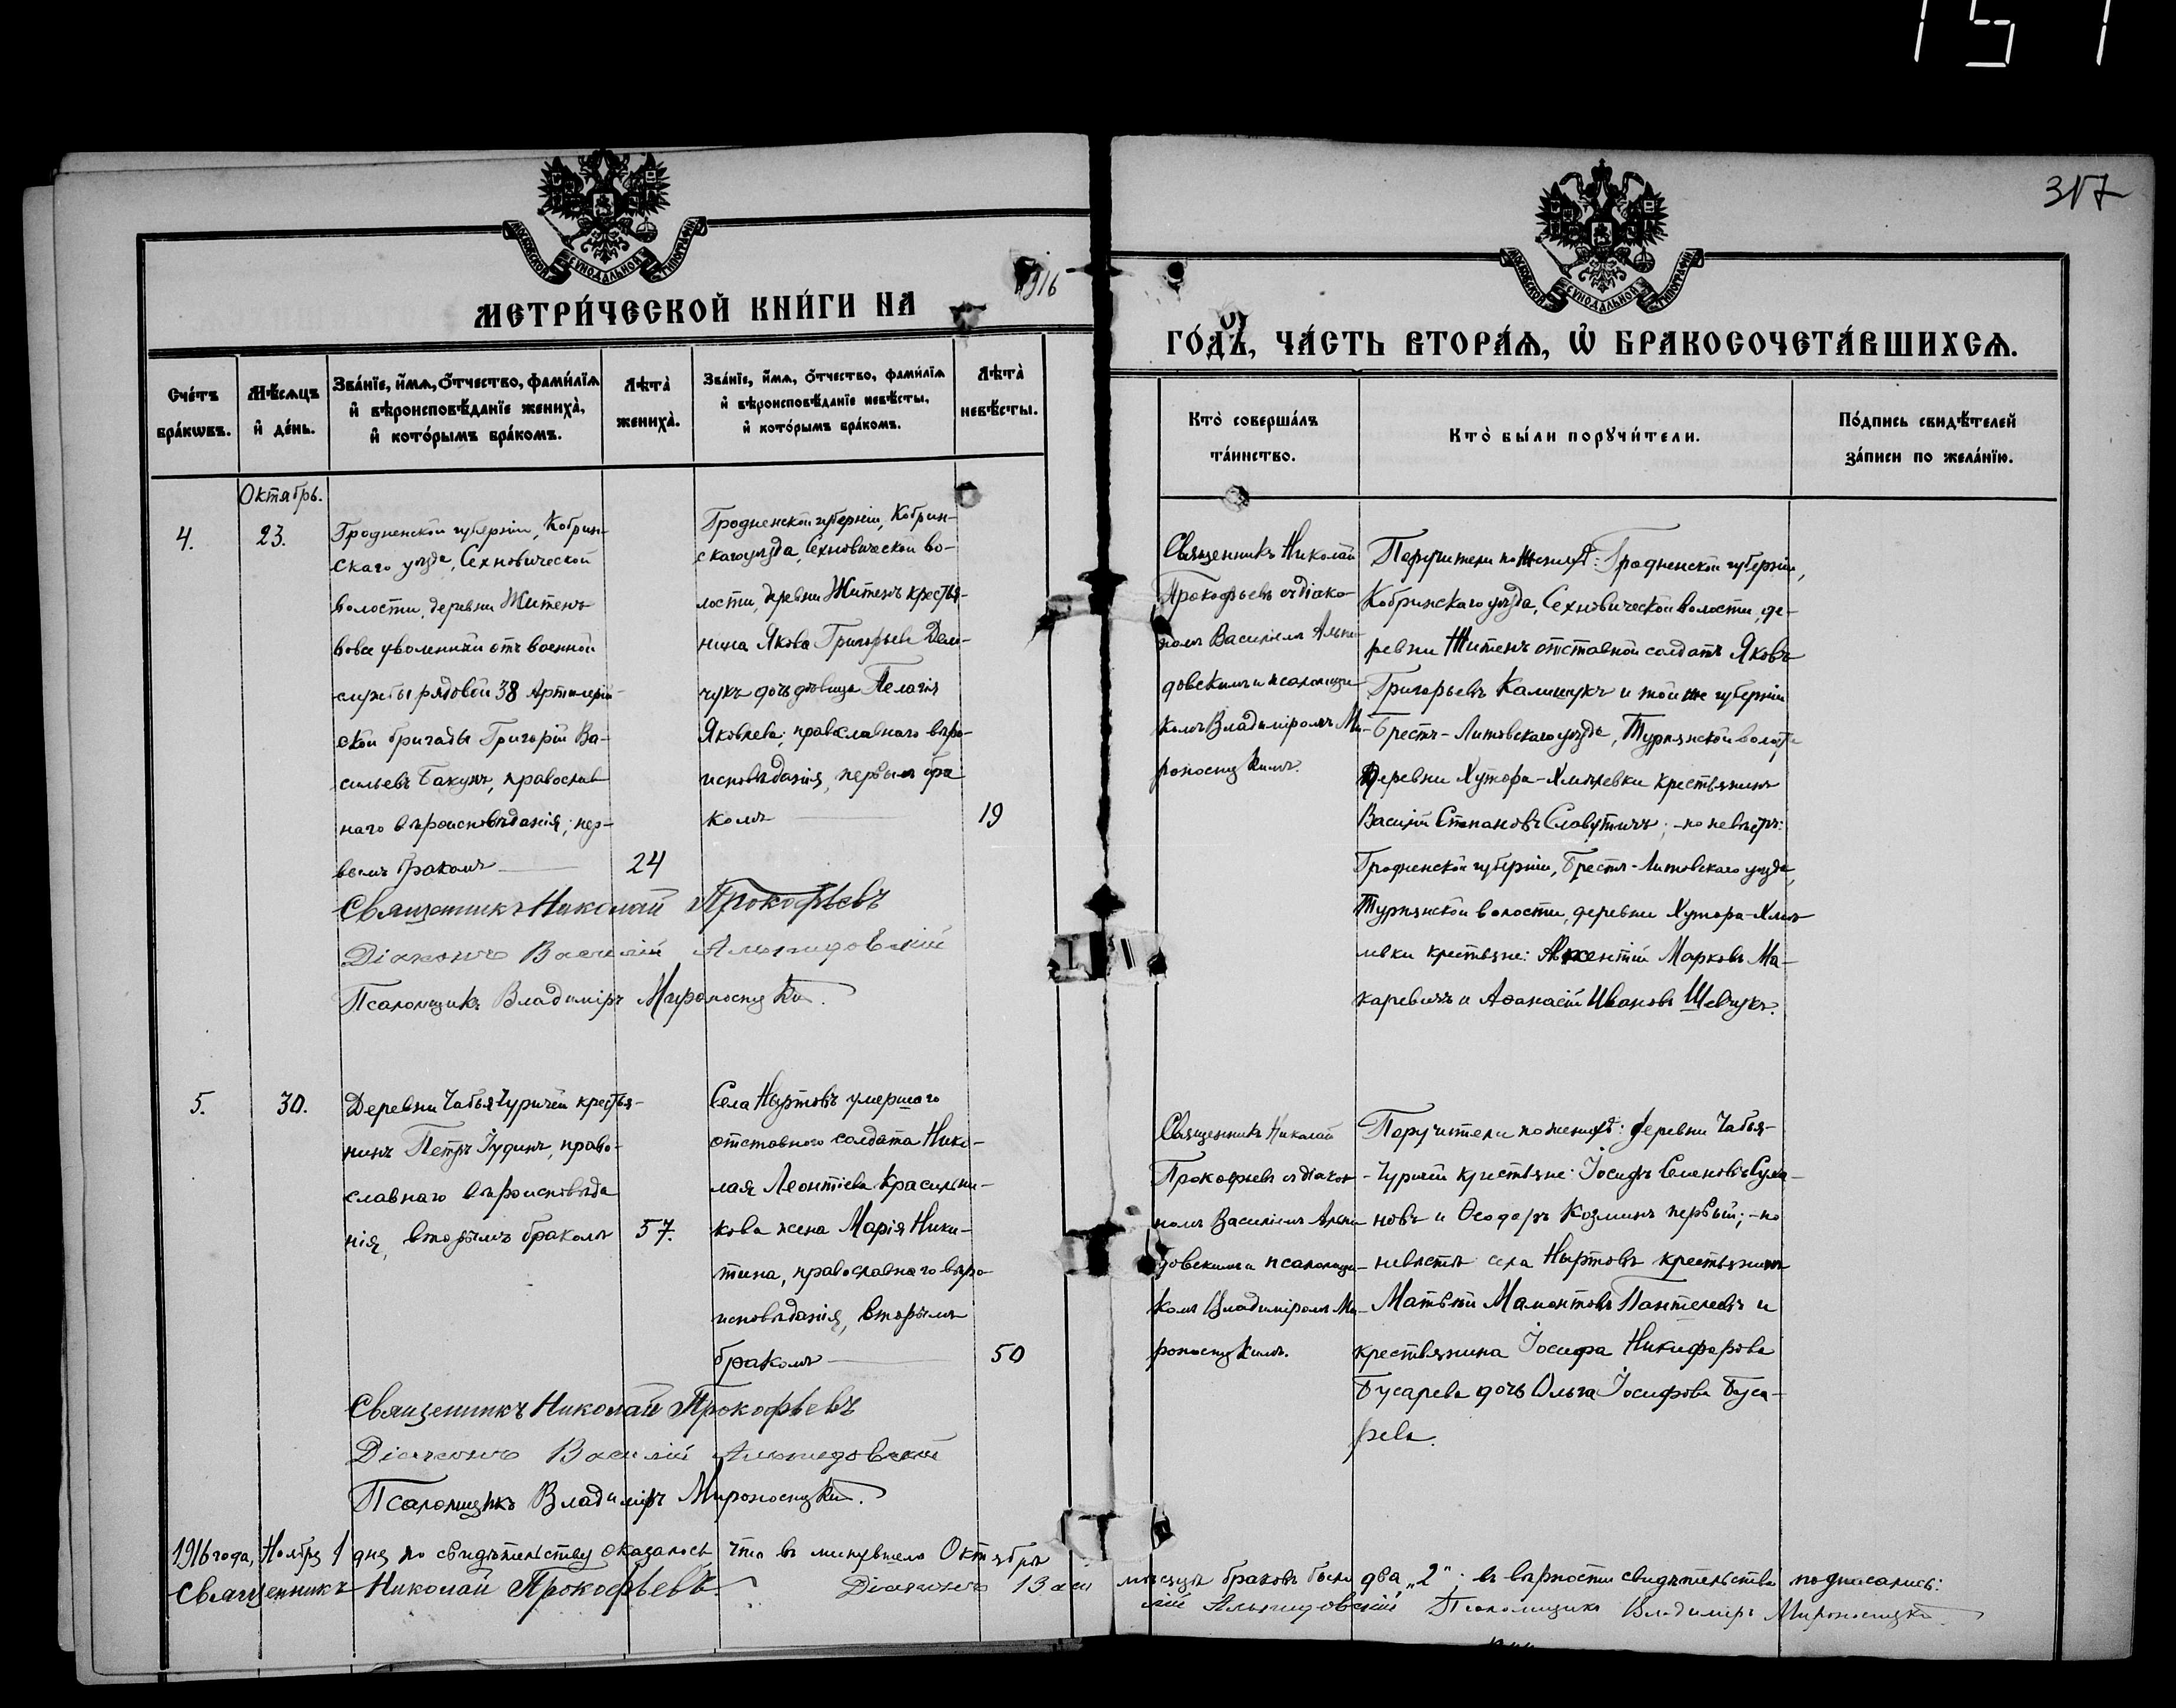 151
317
МОСКОВСКОЙ СѴНОДАЛЬНОЙ ТИПОГРАФІИ
МОСКОВСКОЙ СѴНОДАЛЬНОЙ ТИПОГРАФІИ
МЕТРИ́ЧЕСКОЙ КНИ́ГИ НА 1916
ГО́ДЪ, ЧА́СТЬ ВТОРА́Ѧ, Ѡ҆ БРАКОСОЧЕТА́ВШИХСѦ.
Сче́тъ
бра́кѡвъ.
Мѣ́сѧцъ
и҆ де́нь.
Зва́нїе, и҆́мѧ, ѻ҆́тчество, фами́лїѧ
и҆ вѣроисповѣ́данїе жениха̀,
и҆ кото́рымъ бра́комъ.
Лѣта̀
жениха̀.
Зва́нїе, и҆́мѧ, ѻ҆́тчество, фами́лїѧ
и҆ вѣроисповѣ́данїе невѣ́сты,
и҆ кото́рымъ бра́комъ.
Лѣта̀
невѣ́сты.
Кто̀ соверша́лъ
та́инство.
Кто̀ бы́ли порꙋчи́тели.
По́дпись свидѣ́телей
за́писи по жела́нїю.
Октябрь.
4.
23.
Гродненской губерніи, Кобрин-
скаго уѣзда, Сехновической
волости, деревни Житенъ
вовсе уволенный отъ военной
службы рядовой 38 Артилерій-
ской бригады Григорій Ва-
сильевъ Бакунъ, православ
наго вѣроисповѣданія; пер-
вымъ бракомъ
24
Гродненской губерніи, Кобрин-
скаго уѣзда, Сехновической во-
лости, деревни Житенъ крестья-
нина Якова Григорьева
чукъ дочь дѣвица Пелагія
Яковлева; православнаго вѣро-
исповѣданія, первымъ бра
комъ
19
Священникъ Николай
Прокофьевъ съ діако-
номъ Василіемъ Альпи-
довскимъ и псаломщи-
комъ Владиміромъ Ми-
роносицкимъ.
Поручители по женихѣ: Гродненской губерніи,
Кобринскаго уѣзда, Сехновической волости, де-
ревни Житенъ отставной солдатъ Яковъ
Григорьевъ Калишукъ и той же губерніи
Брестъ-Литовскаго уѣзда, Турнянской волости
деревни Хутора-Хмѣлевки крестьянинъ
Василій Степановъ Славутичъ; - по невѣстѣ:
Гродненской губерніи, Брестъ-Литовскаго уѣзда,
Турнянской волости, деревни Хутора-Хмѣ-
левки крестьяне: Авксентій Марковъ Ма-
каревичъ и Аѳанасій Ивановъ Шевчукъ.
Священникъ Николай Прокофьевъ
Діаконъ Василій Альпидовскій
Псаломщикъ Владиміръ Мироносицкій.
5.
30.
Деревни Чабья-Чурчей крестья-
нинъ Петръ Іудинъ, право-
славнаго вѣроисповѣда
нія, вторымъ бракомъ
57.
Села Ныртовъ умершаго
отставного солдата Нико-
лая Леонтіева Красильни-
кова жена Марія Ники-
тина, православнаго вѣро
исповѣданія, вторымъ
бракомъ
50
Священникъ Николай
Прокофьевъ съ діакон-
номъ Василіемъ Альпи
довскимъ и псаломщи-
комъ Владиміромъ Ми-
роносицкимъ.
Поручители по женихѣ: деревни Чабья-
Чурчей крестьяне: Іосифъ Семеновъ Суха-
новъ и Ѳеодоръ Козминъ первый; - по
невѣстѣ села Ныртовъ крестьянинъ
Матвѣй Мамонтовъ Пантелеевъ и
крестьянина Іосифа Никифорова
Бусарева дочь Ольга Іосифова Буса-
рева.
Священникъ Николай Прокофьевъ
Діаконъ Василій Альпидовскій
Псаломщикъ Владиміръ Мироносицкій.
1916 года, Ноября 1 дня по свидѣтельству оказалось что въ минувшемъ Октябрѣ мѣсяцѣ браковъ было два „2“; въ вѣрности свидѣтельства подписались:
Священникъ Николай Прокофьевъ. Діаконъ Василій Альпидовскій Псаломщикъ Владиміръ Мироносицкій